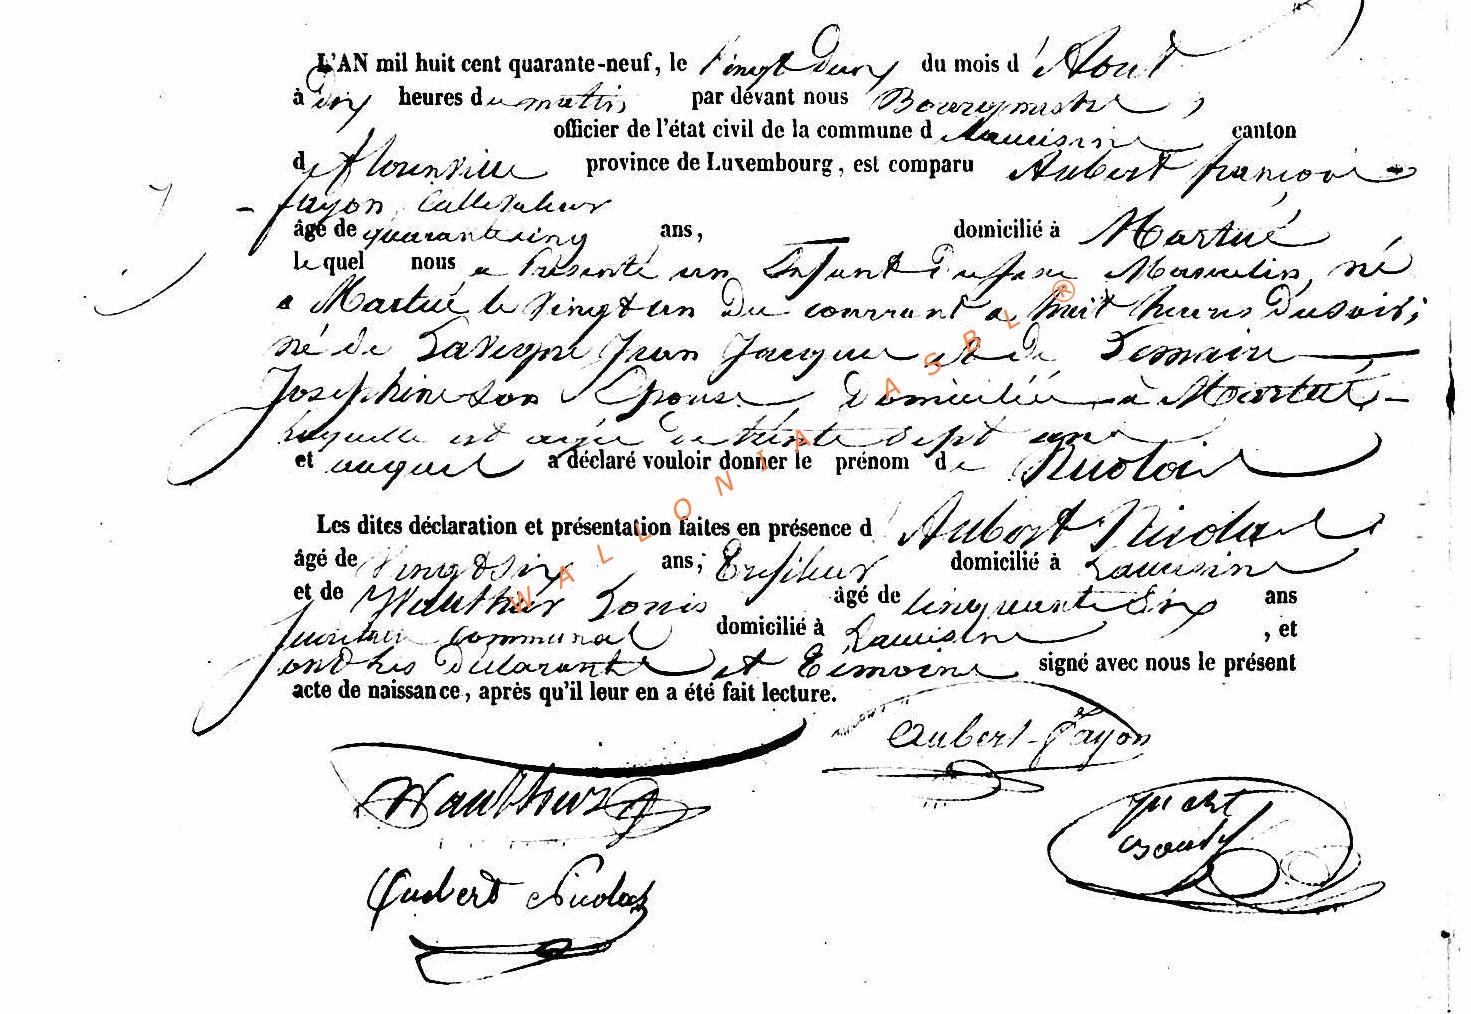 L'AN mil huit cent quarante-neuf, le Vingt Deux du mois d'Aout
à dix heures du matin par devant nous Bourgmestre,
officier de l'état civil de la commune d Lacuisine canton
de florenville province de Luxembourg, est comparu Aubert françois
fayon, Cultivateur
âgé de quarante cinq ans, domicilié à Martué
le quel nous a Présenté un Enfant du sexe Masculin, né
a Martué le Vingt un du courrant a huit heures du soir;
né de Lavigne Jean Jacques et de Lemaire
Josephine son Epouse Domiciliée à Martué,
Laquelle est agée de trente sept ans
et auquel a déclaré vouloir donner le prénom de Nicolas
Les dites déclaration et présentation faites en présence d'Aubert Nicolas
âgé de Vingt six ans; domicilié à Lacuisine
et de Wauthier Louis âgé de Cinquante Six ans
Secrétaire Communal domicilié à Lacuisine, et
ont les Déclarants et Témoins signé avec nous le présent
acte de naissance, après qu'il leur en a été fait lecture.
Aubert-fayon
Wauthier
Aubert Nicolas
WALLONIA ASBL ®